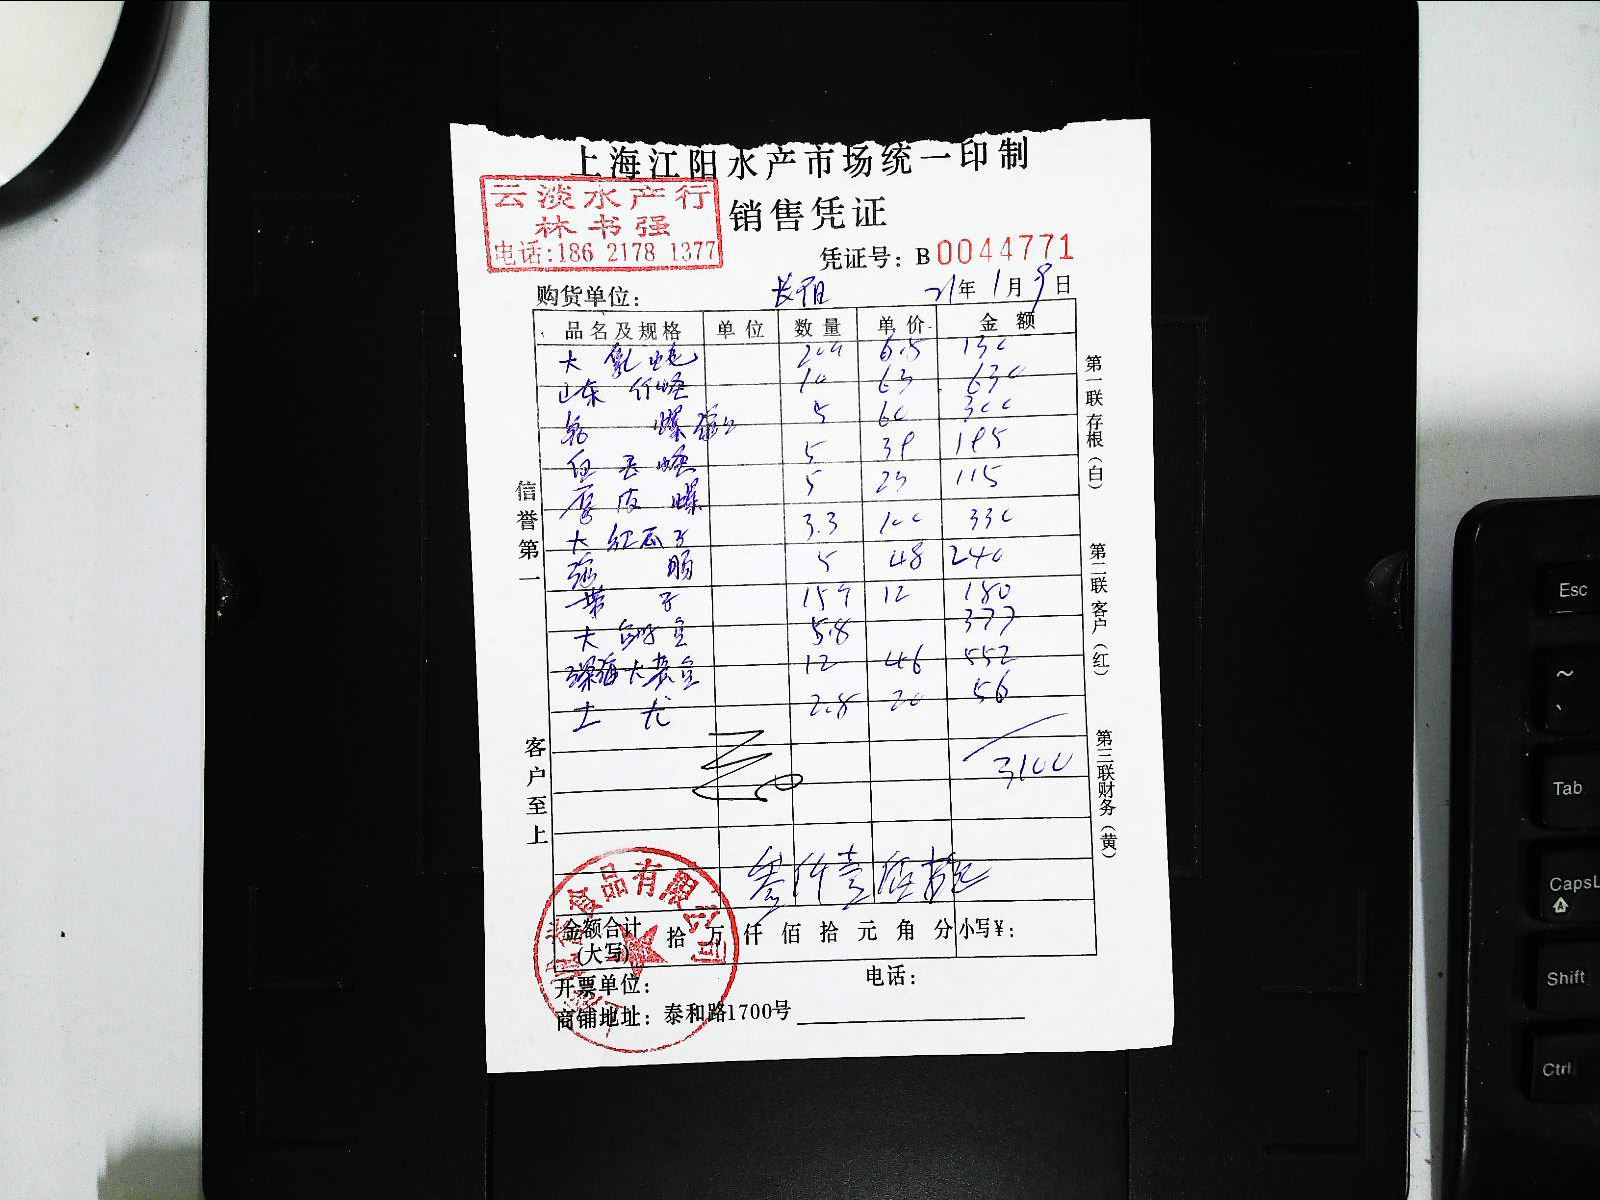 上海江阳水产市场统一印制
云淡水产行
林书强
电话:186 2178 1377
销售凭证
凭证号: B0044771
购货单位:
21年1月9日
品名及规格 单位 数量 单价 金额
大 6.5 130
山东 10 63 630
5 60 300
5 39 195
皮螺 5 23 115
大红瓜子 3.3 100 330
5 48 240
带子 15 12 180
大 5.8 377
深海大 12 46 552
土龙 2.8 20 56
3100
叁仟壹佰
金额合计(大写) 拾万仟佰拾元角分 小写¥:
开票单位:
电话:
商铺地址: 泰和路1700号
信誉第一
客户至上
第一联存根(白)
第二联客户(红)
第三联财务(黄)
食品有限公司
Esc
~
Tab
Caps
Shift
Ctrl